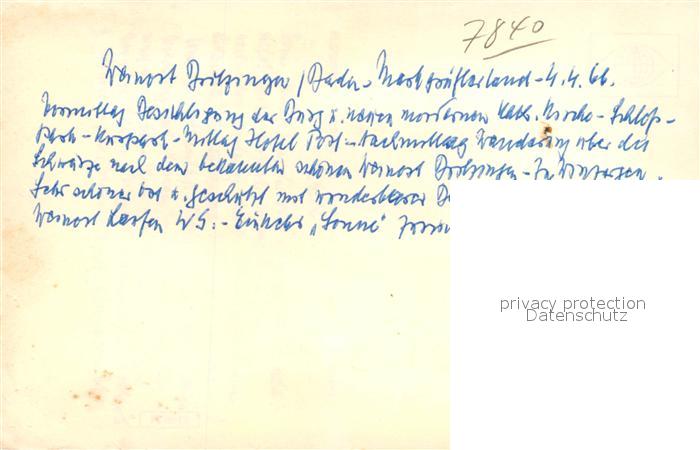 7840
Weinort Britzingen / Baden - Markgräflerland - 4.4.66.
Vormittag Besichtigung der Burg u. neuen modernen kath. Kirche - Schloß-
park - Kurpark - Mittag Hotel Post - Nachmittag Wanderung über die
Schwärze nach dem bekannten schönen Weinort Britzingen -
Sehr schöner Ort u. geschützt mit wunderbarer
Weinort Laufen WG. - Einkehr „Sonne"
privacy protection
Datenschutz